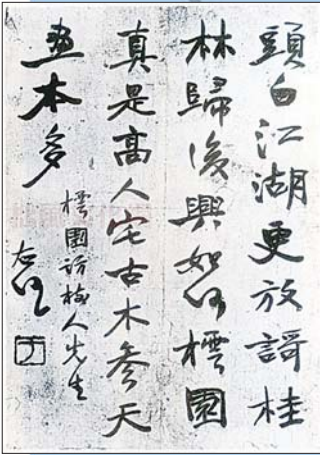 頭白江湖更放謌桂
林歸後興如何樗園
真是高人宅古木參天
畫本多
樗園訪梅人先生
右任